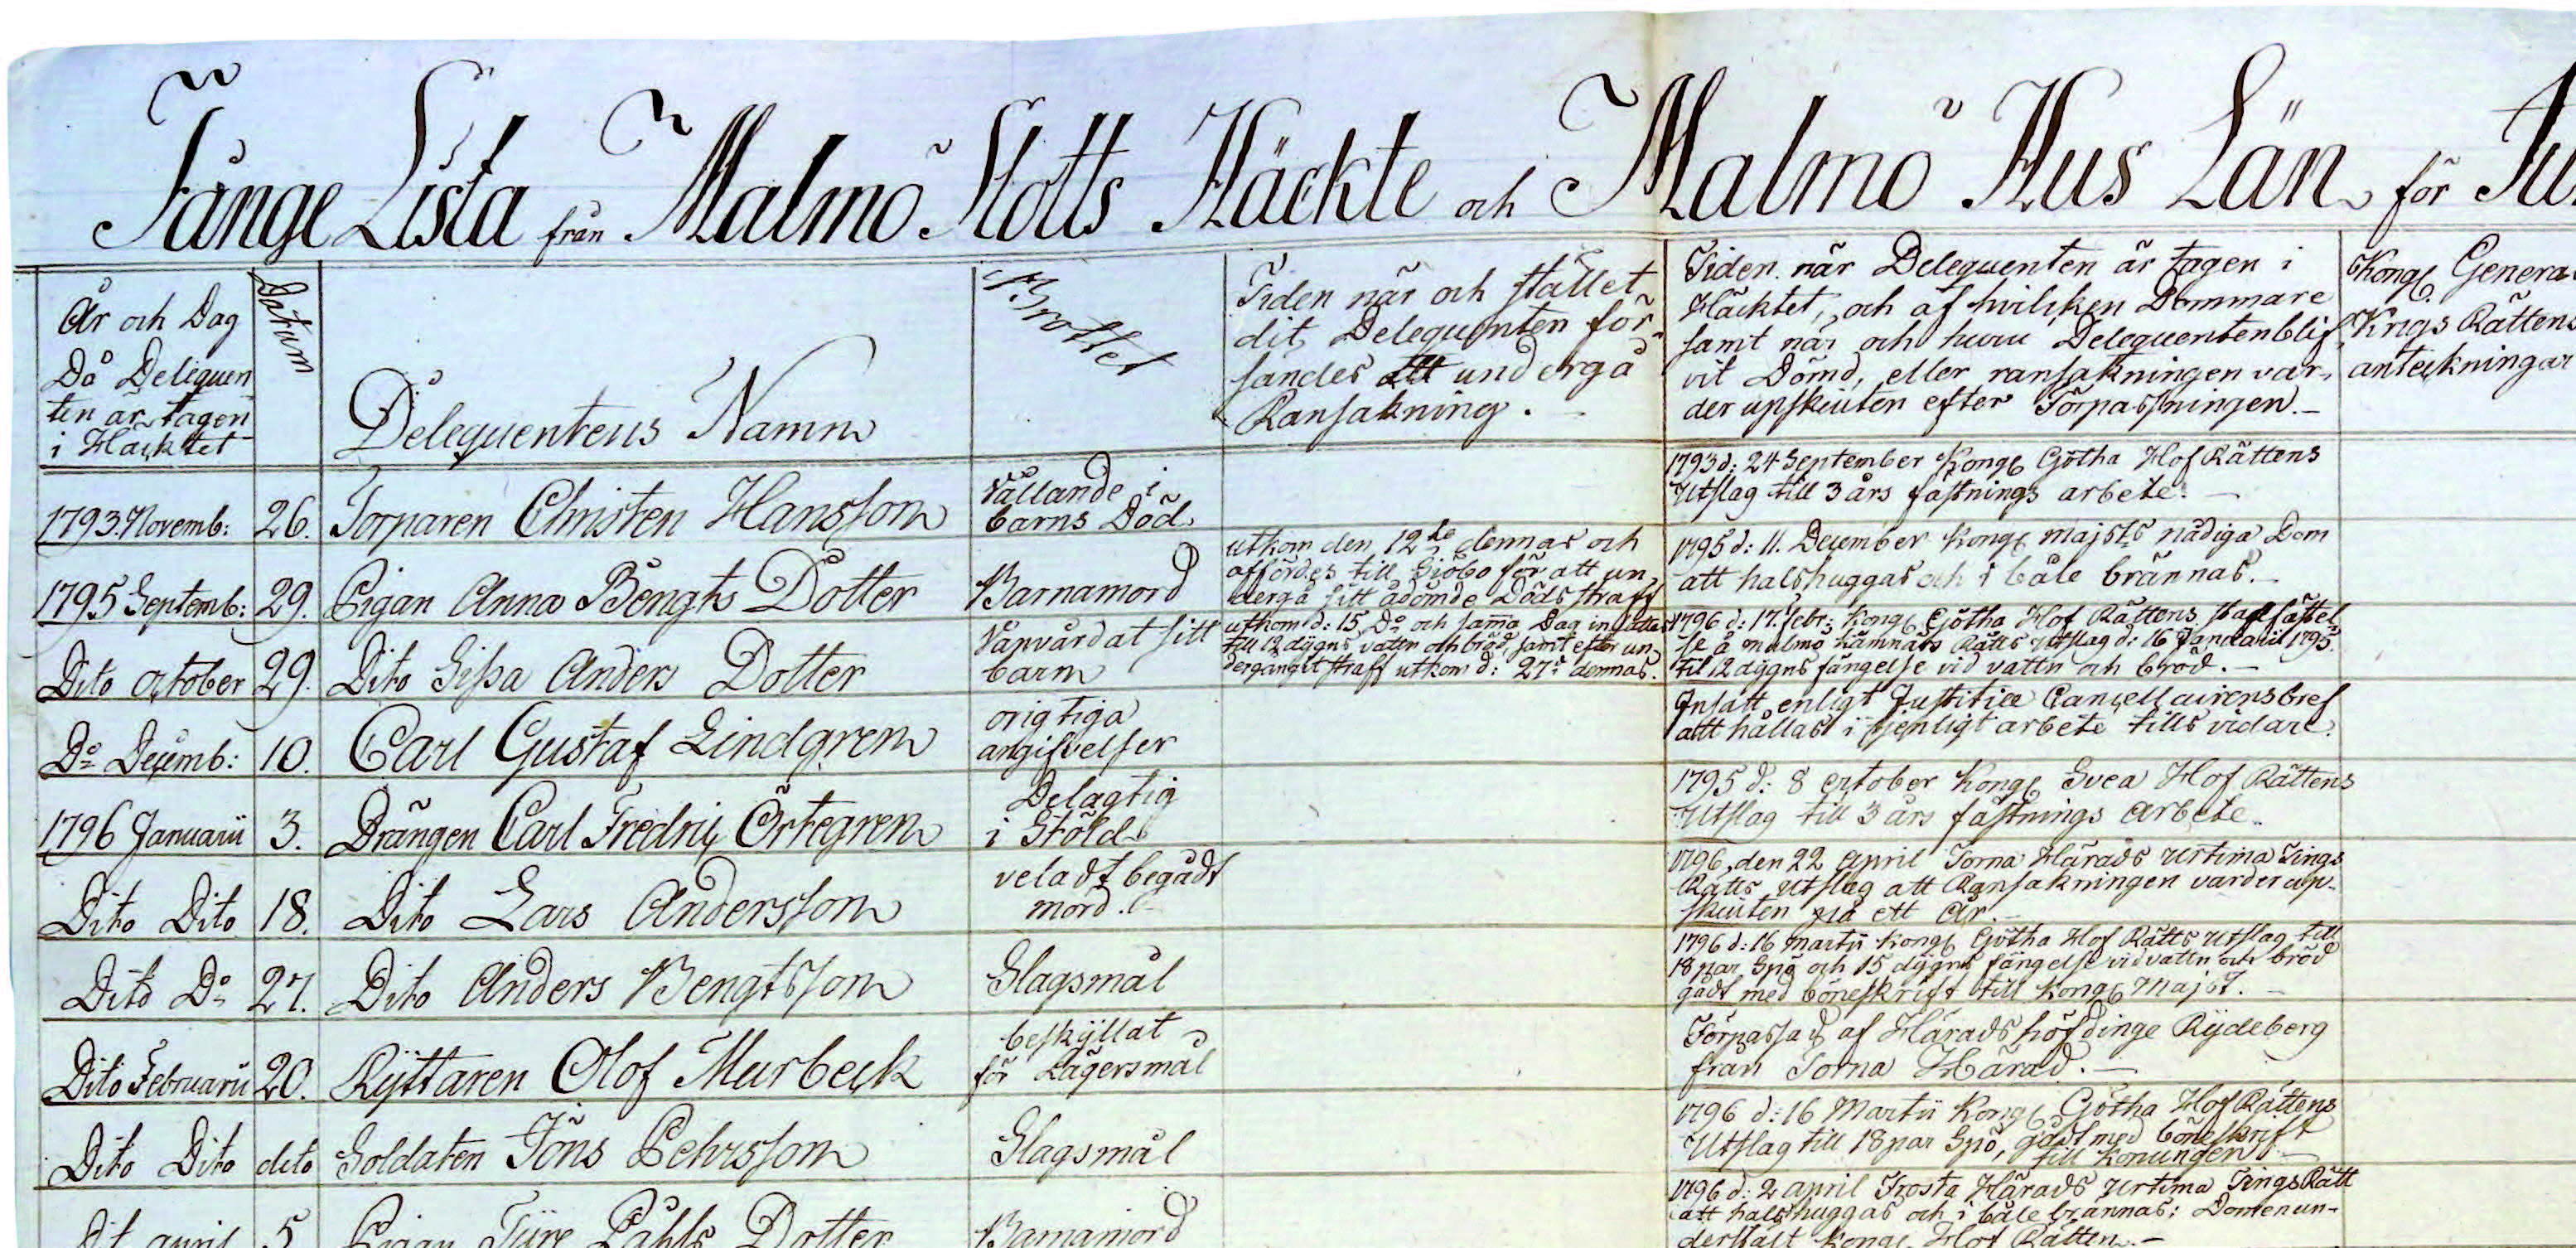 Fånge Lista från Malmö Slotts Häckte och Malmö Hus Län för
År och Dag
Då Deliquen
ten är tagen
i Häcktet
Datum
Delequentens Namn
Brottet
Tiden när och stället
dit Delequenten för-
sandes att undergå
Ransakning.
Tiden när Delequenten är tagen i
Häcktet, och af hvilcken Dommare
samt når och huru Delequenten blif-
vit Dömd, eller ransakningen var-
der upskiuten efter Förpassningen.
Kongl Genera
Krigs Rättens
anteckningar
1793. Novemb:
26.
Torparen Christen Hansson
Vållande i
barns Död.
1793 d: 24 September Kongl Götha Hof Rättens
Utslag till 3 års fästnings arbete.
1795 Septemb:
29.
Pigan Anna Bengts Dotter
Barnamord
utkom den 12te dennas och
affördes till Siöbo för att un-
dergå sitt ådömde Dödsstraff
1795 d: 11. December Kongl majsts nådiga Dom
att halshuggas och i båle brännas.
Dito october
29.
Dito Sissa Anders Dotter
Vanvårdat sitt
barn
utkom d: 15 Do och sama Dag insattes
till 12 dÿgns vatten och bröd, samt efter un-
dergånget straff utkom d: 27 dennas.
1796 d: 17. Febr: Kongl Götha Hof Rättens stadfästel
se å malmö Kämnärs Rätts Utslag d: 16 Januarii 1795.
til 12 dÿgns fängelse vid vatten och bröd.
Do Decemb:
10.
Carl Gustaf Lindgren
origtiga
angifvelser
Insatt enligt Justitiæ Cancellairens bref
att hållas i tjenligt arbete tills vidare.
1796 Januarii
3.
Drängen Carl Fredric Örtegren
Delagtig
i Stöld
1795 d: 8 october Kongl Svea Hof Rättens
Utslag till 3 års fästnings arbete.
Dito Dito
18.
Dito Lars Andersson
veladt begådt
mord.
1796, den 22 April Torna Härads Urtima Tings
Rätts Utslag att Ransakningen varder up-
skiuten på ett År.
Dito Do
27.
Dito Anders Bengtsson
Slagsmål
1796 d: 16 martii Kongl Götha Hof Rätts Utslag till
18 par Spö och 15 dÿgns fängelse vid vatten och bröd
gådt med böneskrift till Kongl Majst.
Dito Februarii
20.
Rÿttaren Olof Murbeck
beskÿllat
för Lägersmål
Förpassad af Härads höfdinge Rÿdeberg
från Torna Härad.
Dito Dito
dito
Soldaten Jöns Pehrsson
Slagsmål
1796 d: 16 Martii Kongl Götha Hof Rättens
Utslag till 18 par Spö, gådt med böneskrift
till Konungen
Dt april
5
Pigan Påhls Dotter
Barnamord
1796 d: 2 april Frosta Härads Urtima Tings Rätt
att halshuggas och i båle brännas; Domen un-
derstält Kongl Hof Rätten.